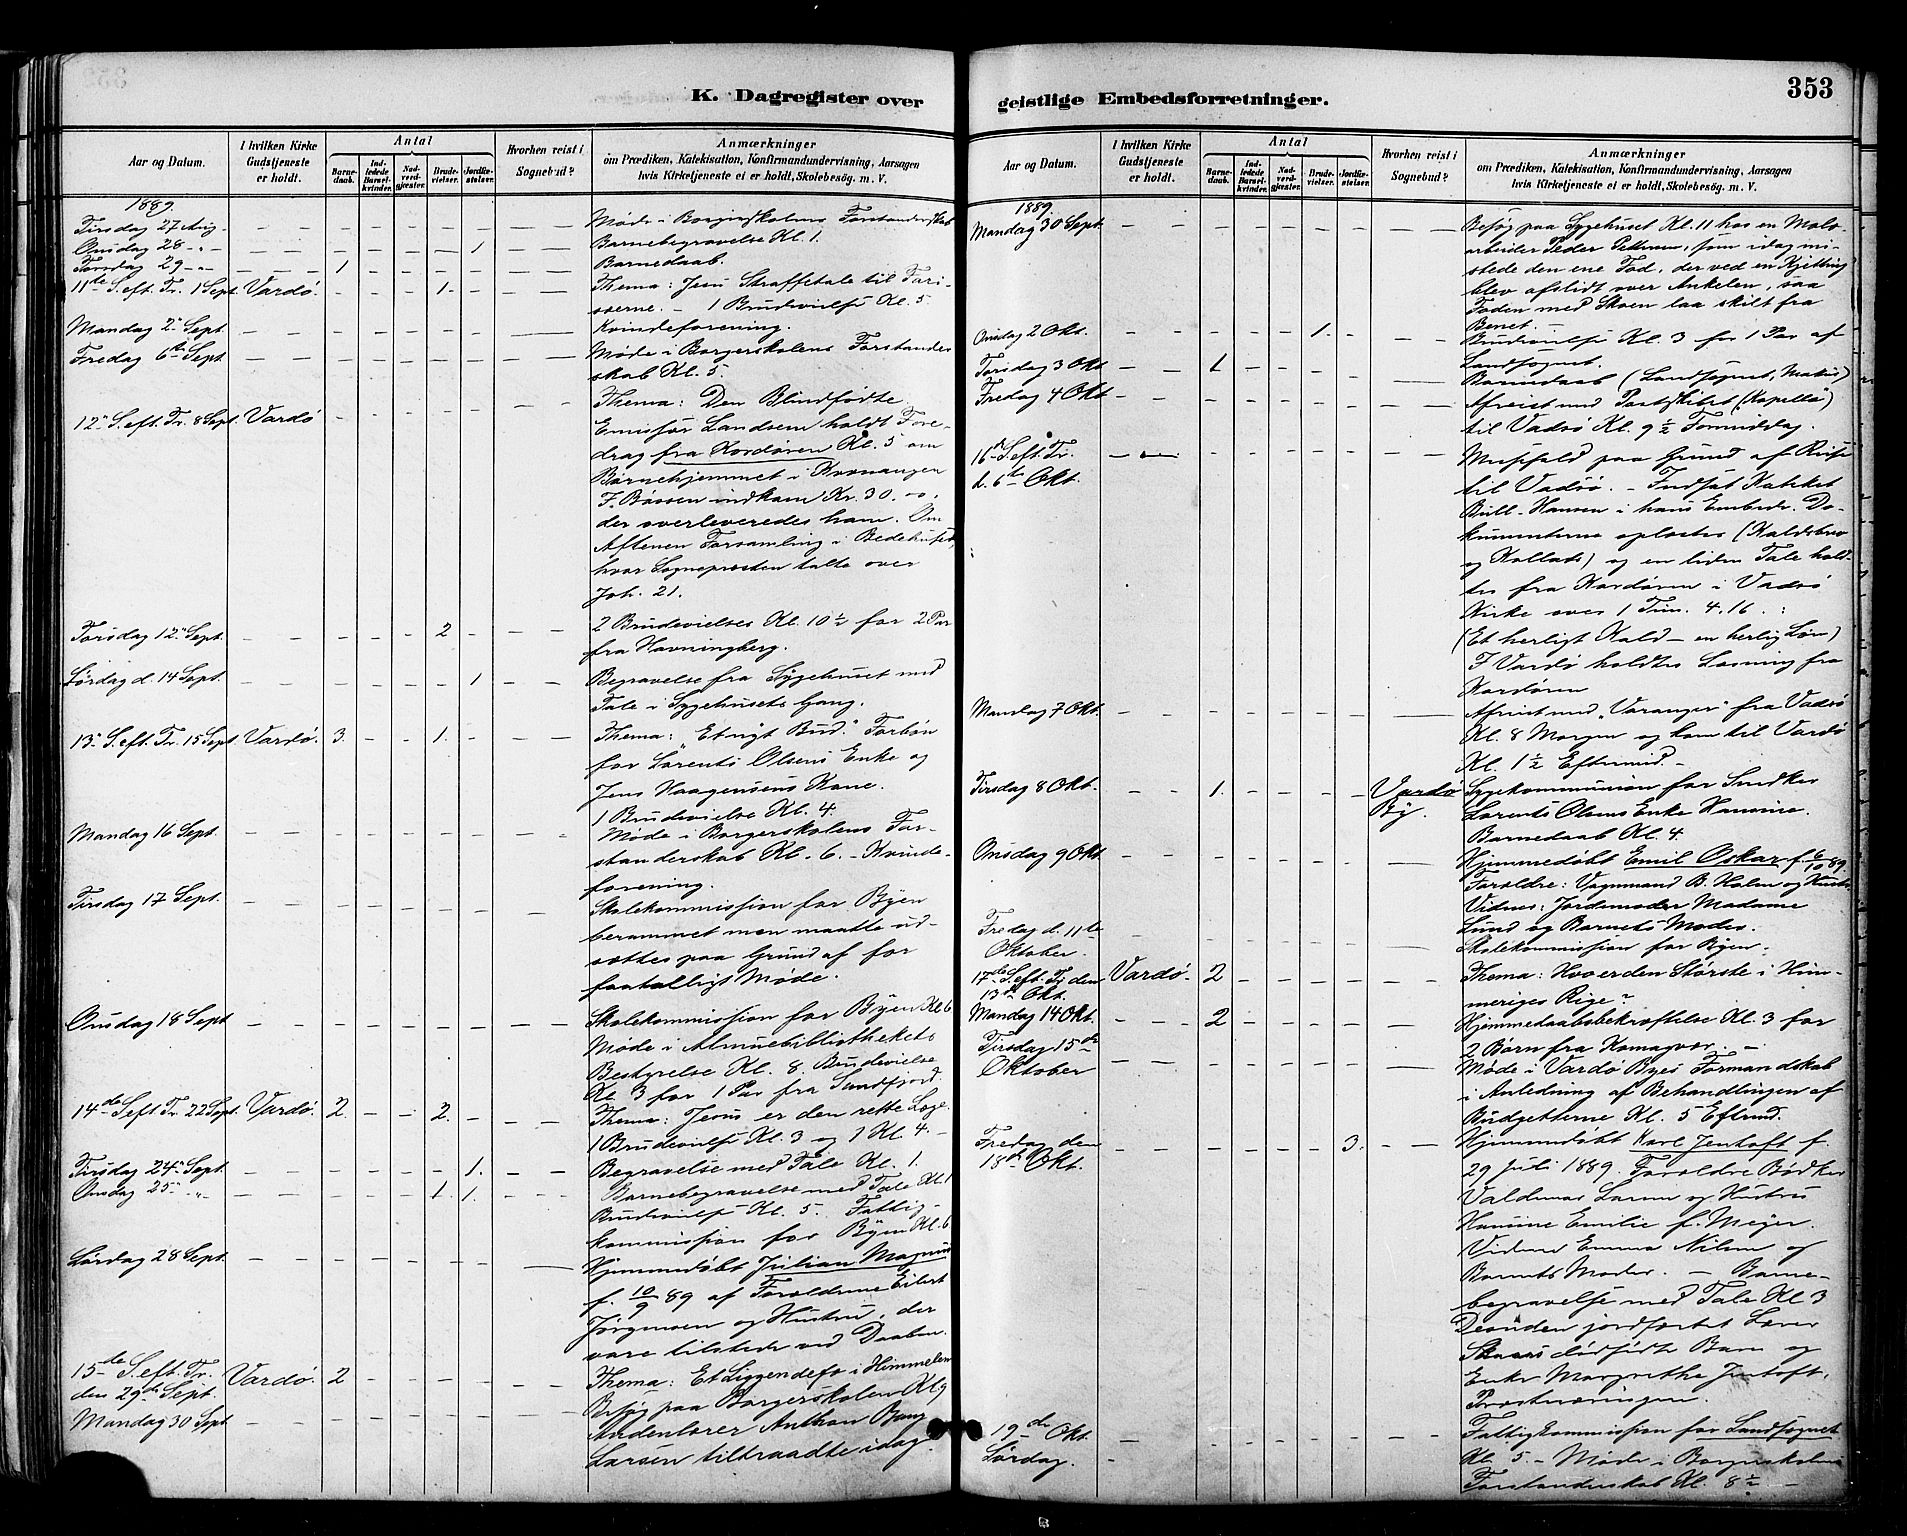 353
K. Dagregister over
geistlige Embedsforretninger.
Aar og Datum.
I hvilken Kirke Gudstjeneste er holdt.
Antal
Barnedaab.
Indledede Barselkvinder.
Nadverdgjester.
Brudevielser.
Jordfæstelser.
Hvorhen reist i Sognebud?
Anmærkninger
om Prædiken, Katekisation, Konfirmandundervisning, Aarsagen
hvis Kirketjeneste ei er holdt, Skolebesøg. m. V.
1889.
Tirsdag 27 Aug. Møde i Borgerskolens Forstanderskab
Onsdag 28 - " - 1 Barnebegravelse Kl. 1.
Torsdag 29 - " - 1 Barnedaab.
11te S. eft. Tr. 1 Sept. Vardø. 1. Thema: Jesu Straffetale til Fari-
sæerne. - 1 Brudevielse Kl. 5
Mandag 2. Sept. Kvindeforening.
Fredag 6te Sept. Møde i Borgerskolens Forstander
skab Kl. 5.
12. S. eft. Tr. 8 Sept. Vardø Thema: Den Blindfødte.
Emissær Landsem holdt Fore-
drag fra Kordøren Kl. 5 om
Børnehjemmet i Kvænangen
I Bøssen indkom Kr. 30.00.
der overleveredes ham. Om
Aftenen Forsamling i Bedehuset,
hvor Sognepresten talte over
Joh. 21.
Torsdag 12. Sept. 2 2 Brudevielses Kl. 10½ for 2 Par
fra Havningberg.
Lørdag d. 14 Sept. 1 Begravelse fra Sygehuset med
Tale i Sygehusets Gang.
13. S. eft. Tr. 15 Sept. Vardø. 3. 1. Thema: "Et nyt Bud." Forbøn
for Lorents Olsens Enke og
Jens Haagensens Kone.
1 Brudevielse Kl. 4.
Mandag 16 Sept. Møde i Borgerskolens For-
standerskab Kl. 6. - Kvinde-
forening.
Tirsdag 17 Sept. Skolekommission for Byen
berammet men maatte ud-
sættes paa Grund af for
faatalligt Møde.
Onsdag 18 Sept Skolekommission for Byen Kl 6
Møde i Almuebibliothekets
Bestyrelse Kl. 8. Brudevielse
Kl. 3 for 1 Par fra Sandfjord.
14de S. eft. Tr. 22 Sept. Vardø. 2. 2. Thema: Jesus er den rette Læge.
1 Brudevielse Kl. 3 og 1 Kl. 4. -
Tirsdag 24. Sept. 1. Begravelse med Tale Kl. 1.
Onsdag 25. " " 1. 1. Barnebegravelse med Tale Kl. 1
Brudevielse Kl. 5. Fattig-
kommission for Byen Kl. 6
Lørdag 28 Sept. Hjemmedøbt Julian Magnus
f. 10/9 89 af Forældrene Eilert
Jørgensen og Hustru, der
vare tilstede ved Daaben.
15de S. eft. Tr. Vardø. 2 Thema: Et Liggendefæ i Himmelen
den 29de Sept.
Mandag 30 Sept Besøg paa Borgerskolen Kl 9
Andenlærer Anthon Bang
Larsen tiltraadte idag.
Aar og Datum.
I hvilken Kirke Gudstjeneste er holdt.
Antal
Barnedaab.
Indledede Barselkvinder.
Nadverdgjester.
Brudevielser.
Jordfæstelser.
Hvorhen reist i Sognebud?
Anmærkninger
om Prædiken, Katekisation, Konfirmandundervisning, Aarsagen
hvis Kirketjeneste ei er holdt, Skolebesøg. m. V.
1889.
Mandag 30 Sept. Besøg paa Sygehuset Kl. 11 hos en Molo-
arbeider Peder Pettersen, som idag mi-
stede den ene Fod, der ved en Kjetting
blev afslidt over Ankelen, saa
Foden med Skoen laa skilt fra
Benet. -
Onsdag 2 Okt. 1. Brudevielse Kl. 3 for 1 Par af
Landsognet.
Torsdag 3 Okt 1 Barnedaab (Landsognet, Makur)
Fredag 4 Okt Afreist med Postskibet (Kapellø)
til Vadsø Kl. 9½ Formiddag.
16de S. eft. Tr. Messefald paa Grund af Reise
d. 6te Okt. til Vadsø. - Indsat Kateket
Bull-Hansen i hans Embede. Do-
kumenterne oplæstes (Kaldsbrev
og Kollats) og en liden Tale hold-
tes fra Kordøren i Vadsø
Kirke over 1 Tim. 4.16. :
(Et herligt Kald - en herlig Løn)
I Vardø holdtes Læsning fra
Kordøren
Mandag 7 Okt. Afreist med "Varanger" fra Vadsø
Kl. 8 Morgen og kom til Vardø
Kl. 1½ Eftermid. -
Tirsdag 8 Okt. 1. Vardø By. Sygekommunion for Snedker
Lorents Olsens Enke Hansine.
Barnedaab Kl. 4.
Onsdag 9 Okt. Hjemmedøbt Emil Oskar f. 6/10 89.
Forældre: Vognmand B. Holm og Hustru.
Vidner: Jordemoder Madame
Lund og Barnets Moder.
Fredag d. 11te
Oktober. Skolekommission for Byen.
17de S. eft. Tr. den Vardø. 2 Thema: Hvo er den Største i Him-
13de Okt. meriges Rige?
Mandag 14 Okt. 2 Hjemmedaabsbekræftelse Kl. 3 for
2 Børn fra Komagvær. -
Tirsdag 15de
Oktober Møde i Vardø Byes Formandskab
i Anledning af Behandlingen af
Budgetterne Kl. 5 Eftmd.
Fredag den 3. Hjemmedøbt Karl Jentoft f.
18de Okt. 29 Juli 1889. Forældre Bødker
Valdemar Larsen og Hustru
Hansine Emilie f. Meyer.
Vidner Emma Nilsen og
Barnets Moder. - Barne-
begravelse med Tale Kl. 3
Desuden jordfæstet Lærer
dødfødte Barn og
Enke Margrethe Jentoft,
Præstnæringen.
19de Okt. Fattigkommission for Landsognet
Lørdag. Kl. 5. - Møde i Borgerskolens
Forstanderskab Kl. 8½. -